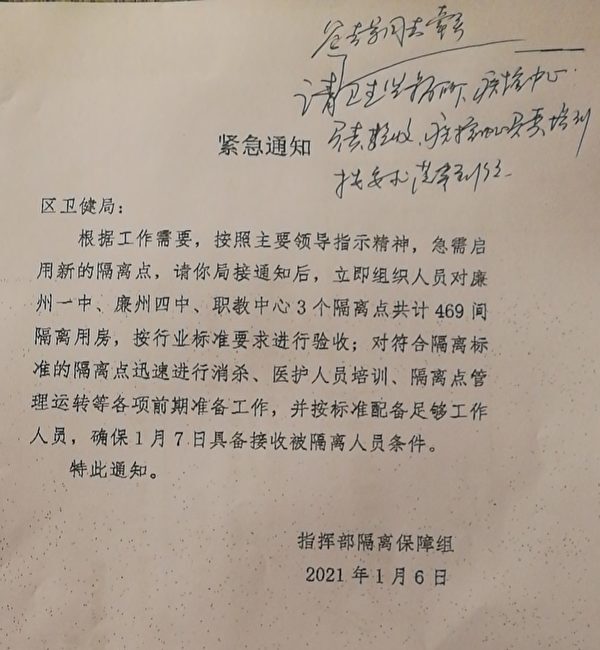 请卫生监督所、疾控中心
紧急通知
区卫健局：
根据工作需要，按照主要领导指示精神，急需启
用新的隔离点，请你局接通知后，立即组织人员对廉
州一中、廉州四中、职教中心3个隔离点共计469间
隔离用房，按行业标准要求进行验收；对符合隔离标
准的隔离点迅速进行消杀、医护人员培训、隔离点管
理运转等各项前期准备工作，并按标准配备足够工作
人员，确保1月7日具备接收被隔离人员条件。
特此通知。
指挥部隔离保障组
2021年1月6日